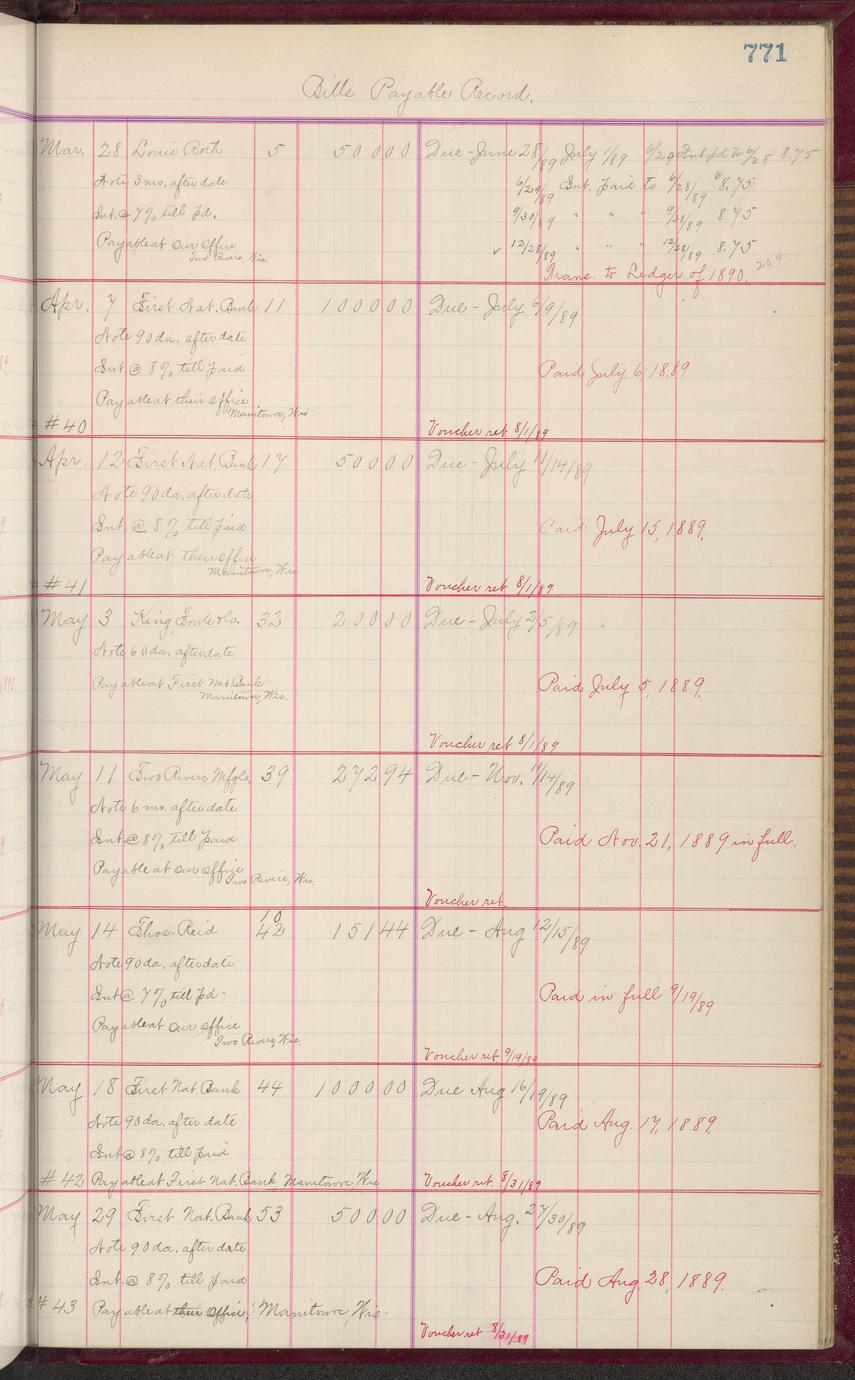 771
Bills Payable Record.
Mar. 28 Louis Roth 5 500 00 Due - June 28/89 July 1/89 6/29 Int. pd to 6/28 8.75
Note 3 mo. after date 6/29/89 Int. paid to 6/28/89 $8.75
Int. @ 7% till pd. 9/30/89 " " " 9/28/89 8.75
Payable at our office 12/28/89 " " " 12/28/89 8.75
Two Rivers, Wis.
Trans. to Ledger of 1890.
Apr. 7 First Nat. Bank 11 1000 00 Due - July 6/9/89
Note 90 da. after date
Int @ 8% till paid Paid July 6, 1889
Payable at their office
Manitowoc, Wis
#40 Voucher ret 8/1/89
Apr. 12 First Nat. Bank 17 500 00 Due - July 11/14/89
Note 90 da. after date
Int @ 8% till paid Paid July 15, 1889.
Payable at their office
Manitowoc, Wis
#41 Voucher ret 8/1/89
May 3 King, Fowle & Co. 32 200 00 Due - July 2/5/89
Note 60 da. after date
Payable at First Nat. Bank Paid July 5, 1889.
Manitowoc, Wis.
Voucher ret 8/1/89
May 11 Two Rivers Mfg Co. 39 272 94 Due - Nov. 11/14/89
Note 6 mo. after date
Int @ 8% till paid Paid Nov. 21, 1889 in full.
Payable at our office
Two Rivers, Wis.
Voucher ret.
10
May 14 Thos. Reid 42 151 44 Due - Aug 12/15/89
Note 90 da. after date
Int @ 7% till pd. Paid in full 9/19/89
Payable at our office
Two Rivers, Wis.
Voucher ret. 9/19/89
May 18 First Nat. Bank 44 1000 00 Due Aug 16/19/89
Note 90 da. after date Paid Aug. 17, 1889.
Int @ 8% till paid
#42 Payable at First Nat. Bank, Manitowoc, Wis Voucher ret. 8/31/89
May 29 First Nat. Bank 53 500 00 Due - Aug. 27/30/89
Note 90 da. after date
Int. @ 8% till paid Paid Aug. 28, 1889.
#43 Payable at their Office, Manitowoc, Wis.
Voucher ret 8/31/89